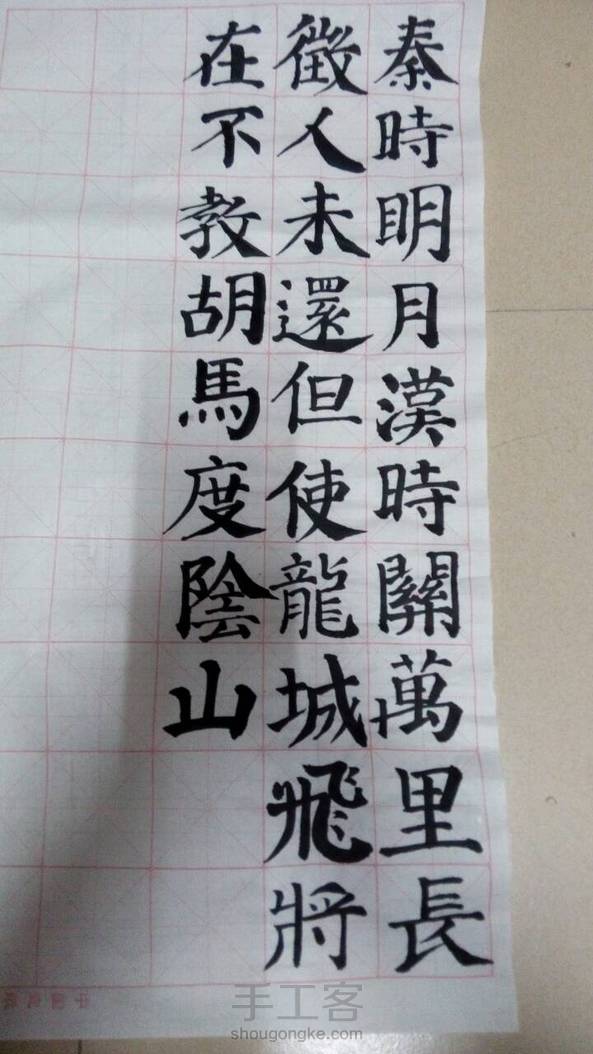 秦時明月漢時關萬里長
徵人未還但使龍城飛將
在不教胡馬度陰山
手工客
shougongke.com